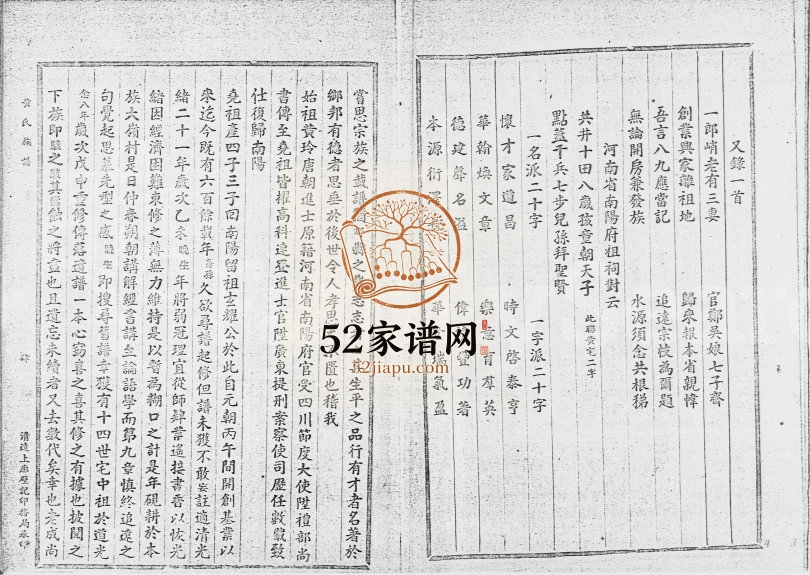 又錄一首
一郎峭老有三妻 官鄭吳娘七子齊
創業興家離祖地 歸來報本省親幃
吾言八九應當記 追遠宗枝為爾題
無論開房兼發族 水源須念共根稊
河南省南陽府祖祠對云
共井十田八歲孩童朝天子 此聯黃宅二字
點蓋千兵七步兒孫拜聖賢
一名派二十字 一字派二十字
懷才家道昌 時文啓泰亨
華翰煥文章 樂意育群英
德建聲名溢 偉 豐功著
本源衍澤 華 瑞氣盈
嘗思宗族之 譜 縣之 志 生平之品行有才者名著於
鄉邦有德者思垂於後世令人孝思 匱也稽我
始祖黃玲唐朝進士原籍河南省南陽府官受四川節度大使陞禮部尚
書傳至堯祖皆擢高科連登進士官陞廣東提刑案察使司歷任數載致
仕復歸南陽
堯祖產四子三子囘南陽留祖玄耀公於此自元朝丙午間開創基業以
來迄今既有六百餘載年 久欲尋譜起修但譜未獲不敢妄註適清光
緒二十一年歲次乙未曉生年將弱冠理宜從師肄業遥接書香以恢光
緒因經濟困難束修之薄無力維持是以晉為糊口之計是年硯耕於本
族大嶺村是日仲春朔朝講解經書講至論語學而第九章慎終追遠之
句覺起思慕先型之感曉生即搜尋舊譜幸獲有十四世宅中祖於道光
念八年歲次戊申重修傳落遺譜一本心竊喜之喜其修之有據也披閱之
下族即駭之駭其舊蝕之將壹也且遺忘未續者又去數代矣幸也老成尚
黃氏族譜
肆
清遠上廓歷記印務局承印
52家谱网
52jiapu.com